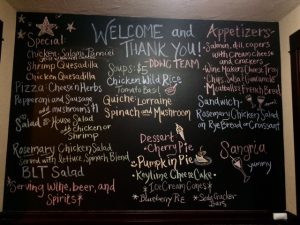 WELCOME and
THANK YOU!
DDHG TEAM
Special:
Chicken Salami Pannini
Shrimp Quesadilla
Chicken Quesadilla
Pizza Cheese n Herbs
Pepperoni and Sausage
and Mushrooms
Salad House Salad
chicken or
Shrimp
Rosemary Chicken Salad
Served with Lettuce, Spinach Blend
BLT Salad
*Serving Wine, beer, and
Spirits*
Soups:
Chicken Wild Rice
Tomato Basil
Quiche: Lorraine
Spinach and Mushroom
Dessert
•Cherry Pie
•Pumpkin Pie
•Keylime Cheese Cake•
*Ice Cream Cones*
*Blueberry Pie
*Soda Cracker
Bars
Appetizers
Salmon, dill, capers
with cream cheese
and crackers
Wine Makers Cheese Tray
Chips, Salsa, Guacamole
Meatballs, French Bread
Sandwich
Rosemary Chicken Salad
on Rye Bread or Croissant
Sangria
yummy